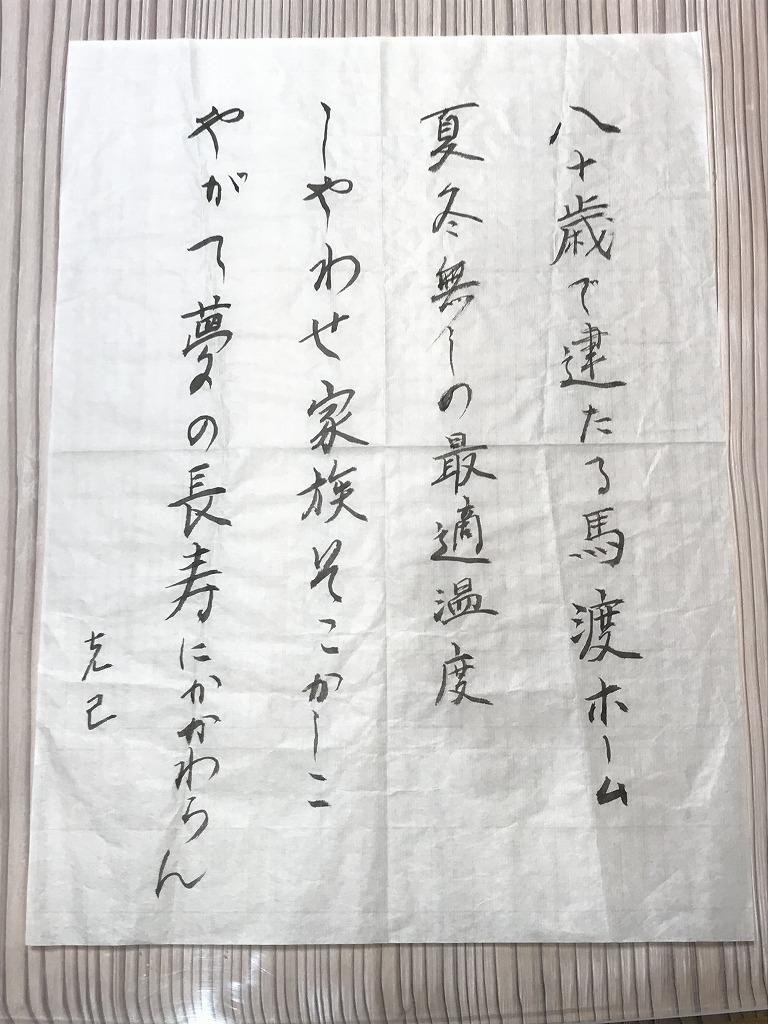 八十歳で建たる馬渡ホーム
夏冬無しの最適温度
しやわせ家族そこかしこ
やがて夢の長寿にかかわらん
克己